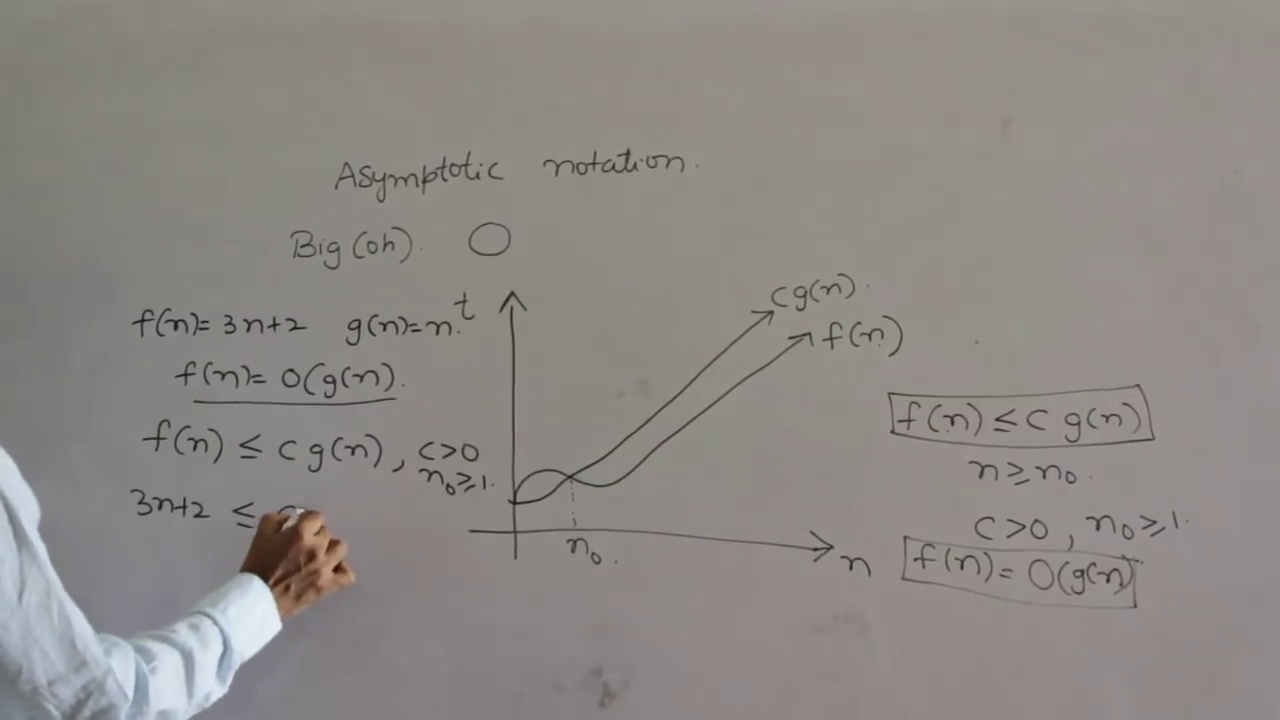 Asymptotic notation.
Big (oh). O
f(n)= 3n+2 g(n)=n.
f(n)= O(g(n).
f(n) ≤ c g(n), c>0
n₀≥1.
3n+2 ≤
t
cg(n).
f(n)
n₀.
n
f(n) ≤ c g(n)
n≥n₀.
c>0, n₀≥1.
f(n)= O(g(n)